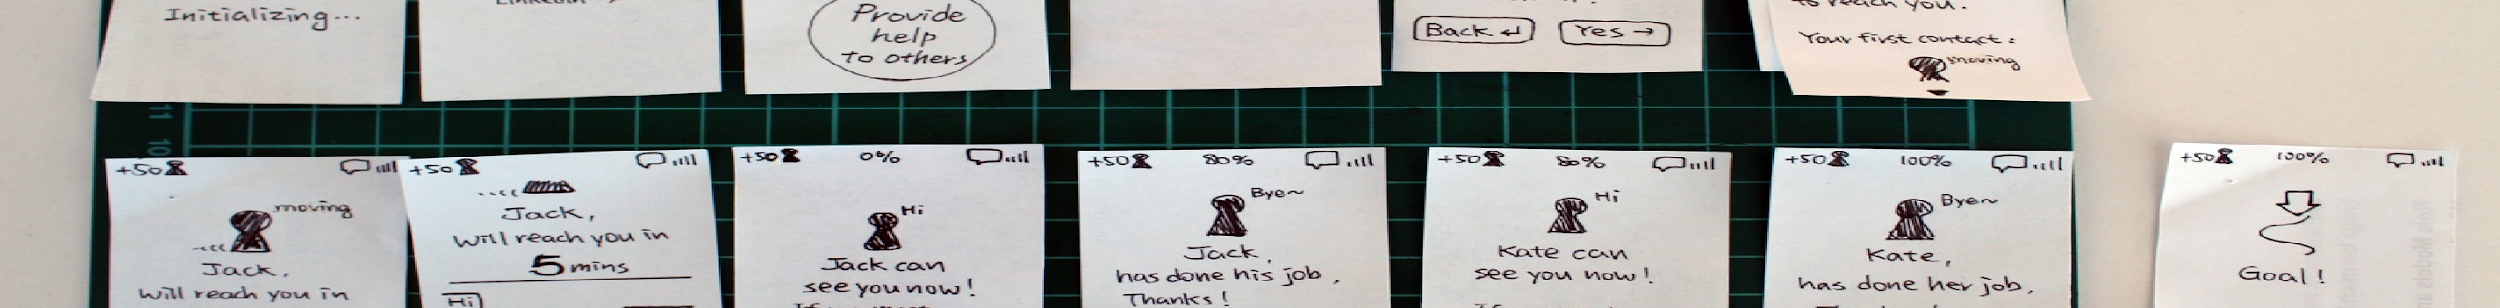 Initializing...
LinkedIn
Provide
help
to others
Back ↵
Yes →
to reach you.
Your first contact:
moving
11
10
+50
moving
Jack,
will reach you in
+50
Jack,
Will reach you in
5 mins
Hi
+50 0%
Hi
Jack can
see you now!
+50 80%
Bye~
Jack,
has done his job,
Thanks!
+50 80%
Hi
Kate can
see you now!
+50 100%
Bye~
Kate,
has done her job.
+50 100%
Goal!